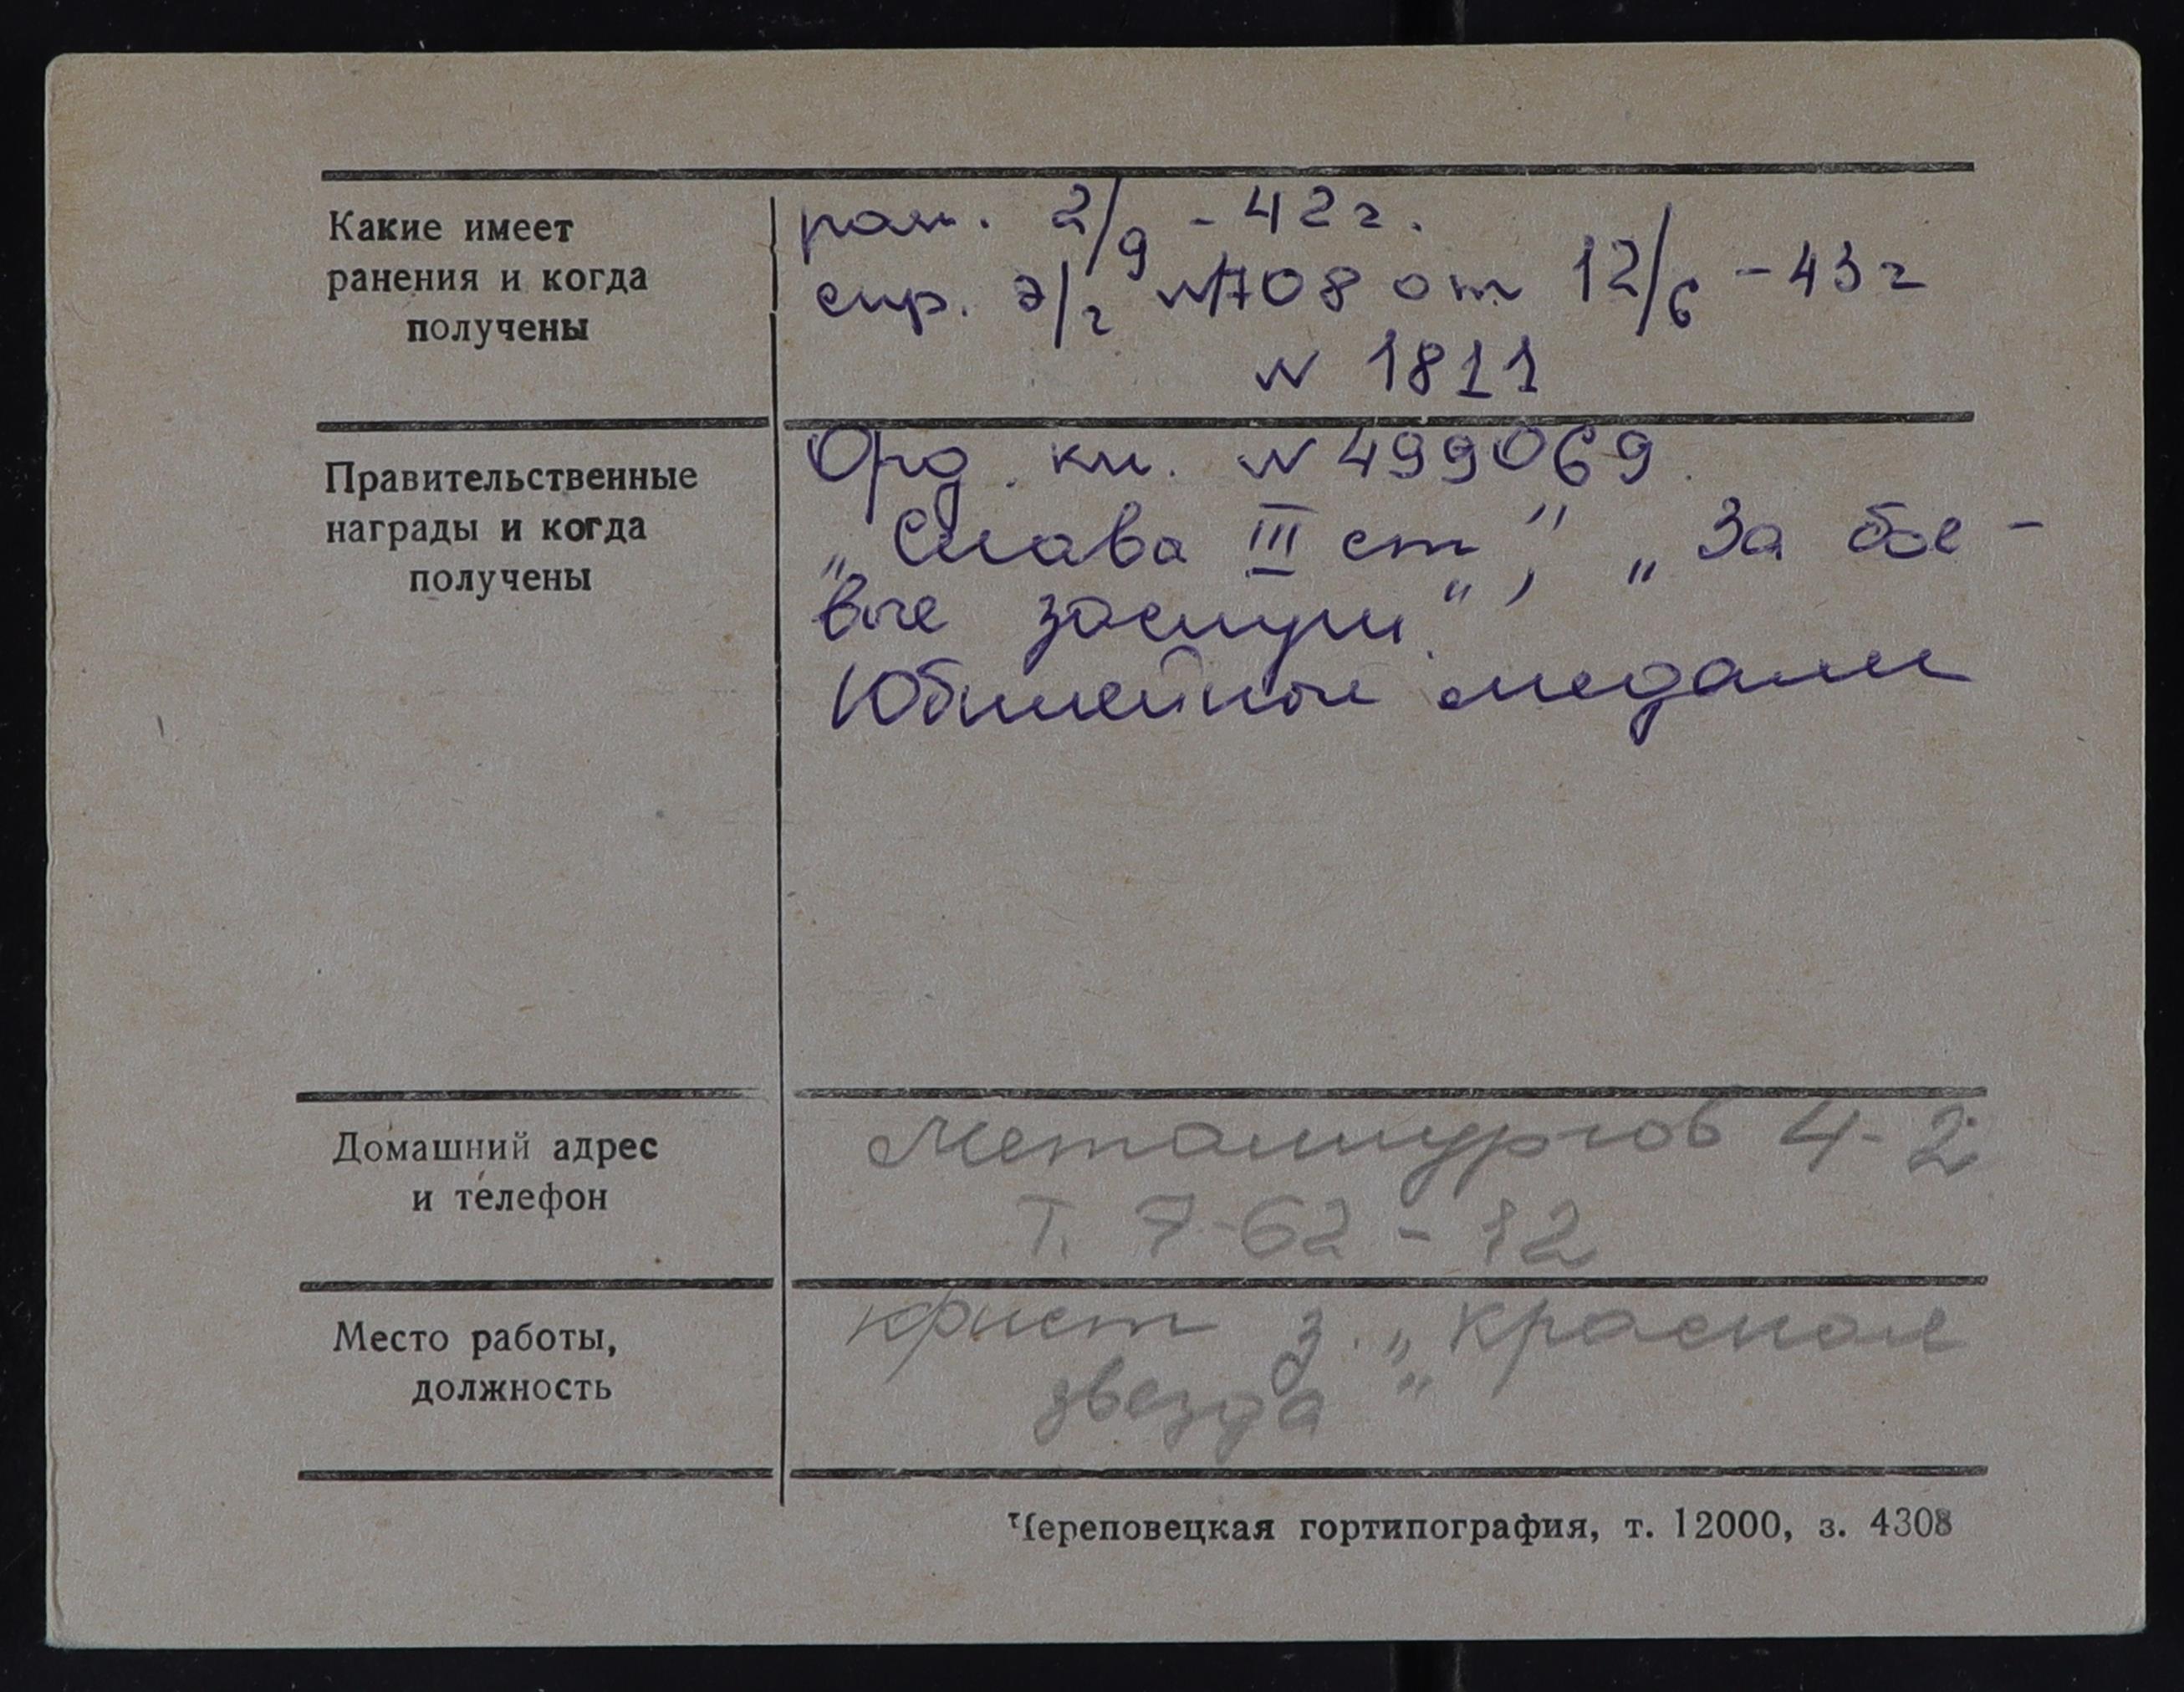 Какие имеет
ранения и когда
получены
ран. 2/9 - 42 г.
спр. э/г №1708 от 12/6 - 43 г
№ 1811
Правительственные
награды и когда
получены
Орд. кн. № 499069.
„Слава III ст", „За бое-
вые заслуги",
Юбилейные медали
Домашний адрес
и телефон
Металлургов 4-2
Т. 7-62-12
Место работы,
должность
юрист з. „Красная
звезда"
Череповецкая гортипография, т. 12000, з. 4308